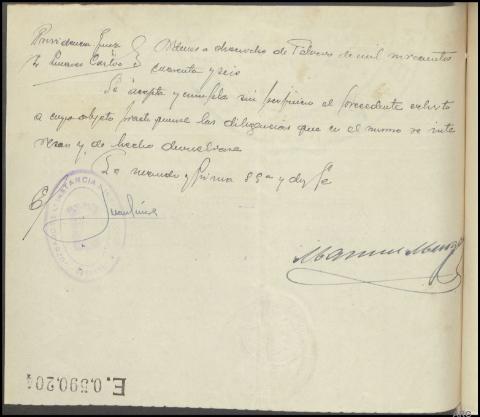 Providencia Juez
Sr. Linares Carlos
a dieciocho de Febrero de mil novecientos
cuarenta y seis
Se acepta y cumpla sin perjuicio el precedente exhorto
a cuyo objeto practiquense las diligencias que en el mismo se inte
resan y, de hecho devuelvase
Lo mandó y firma SSª y doy fe
INSTANCIA
Manuel
E.0.590.204